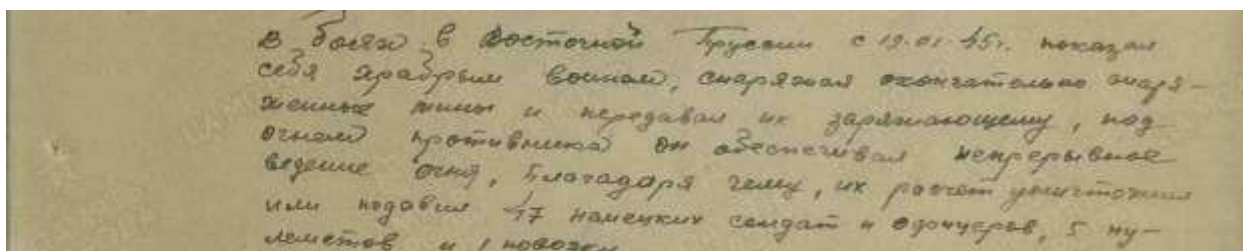 В боях в Восточной Пруссии с 19.01.45г. показал
себя храбрым воином, снаряжая окончательно снаря-
женные мины и передавал их заряжающему, под
огнем противника он обеспечивал непрерывное
ведение огня, благодаря чему, их расчет уничтожил
или подавил 17 немецких солдат и офицеров, 5 пу-
леметов и 1 повозку